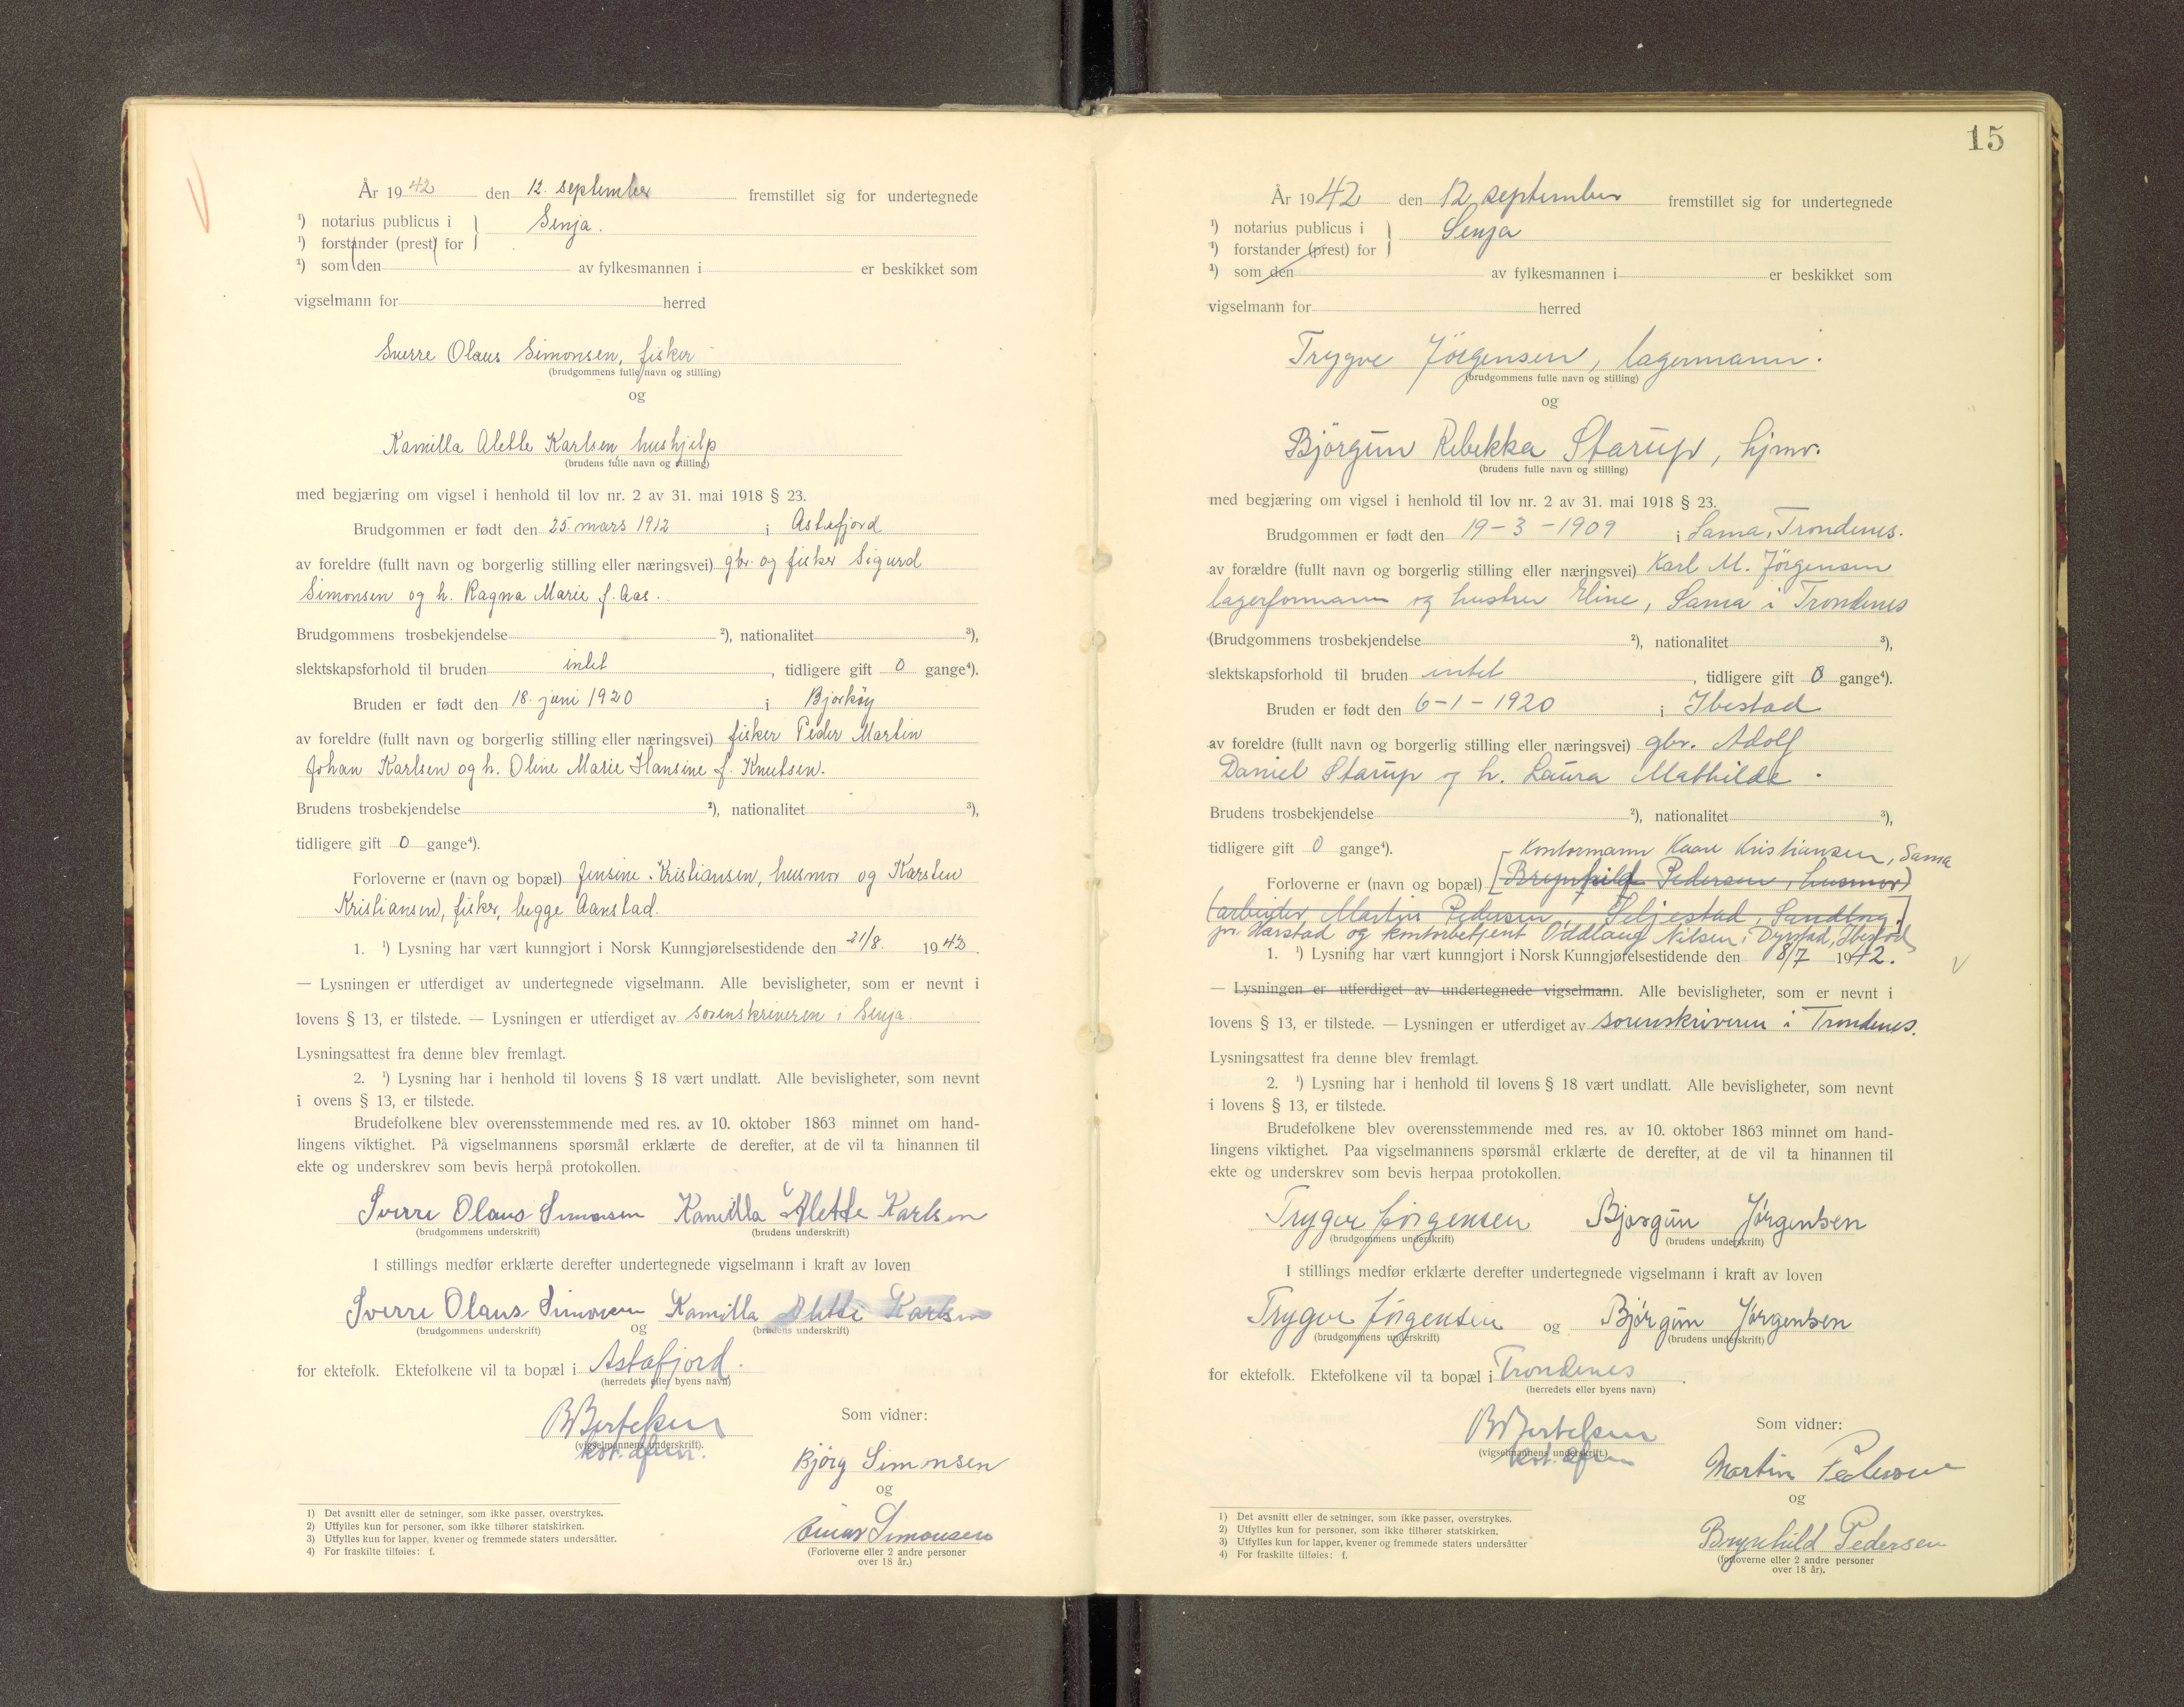 År 1942 den 12. september fremstillet sig for undertegnede
¹) notarius publicus i } Senja.
¹) forstander (prest) for
¹) som den av fylkesmannen i er beskikket som
vigselmann for herred
Sverre Olaus Simonsen, fisker
(brudgommens fulle navn og stilling)
og
Kamilla Alette Karlsen, hushjelp
(brudens fulle navn og stilling)
med begjæring om vigsel i henhold til lov nr. 2 av 31. mai 1918 § 23.
Brudgommen er født den 25. mars 1912 i Astafjord
av foreldre (fullt navn og borgerlig stilling eller næringsvei) gbr. og fisker Sigurd
Simonsen og h. Ragna Marie f. Aas.
Brudgommens trosbekjendelse ²), nationalitet ³),
slektskapsforhold til bruden intet, tidligere gift 0 gange⁴).
Bruden er født den 18. juni 1920 i Bjarkøy
av foreldre (fullt navn og borgerlig stilling eller næringsvei) fisker Peder Martin
Johan Karlsen og h. Oline Marie Hansine f. Knutsen.
Brudens trosbekjendelse ²), nationalitet ³),
tidligere gift 0 gange⁴).
Forloverne er (navn og bopæl) Jensine Kristiansen, husmor og Karsten
Kristiansen, fisker, begge Aanstad.
1. ¹) Lysning har vært kunngjort i Norsk Kunngjørelsestidende den 21/8. 1942.
— Lysningen er utferdiget av undertegnede vigselmann. Alle bevisligheter, som er nevnt i
lovens § 13, er tilstede. — Lysningen er utferdiget av sorenskriveren i Senja.
Lysningsattest fra denne blev fremlagt.
2. ¹) Lysning har i henhold til lovens § 18 vært undlatt. Alle bevisligheter, som nevnt
i ovens § 13, er tilstede.
Brudefolkene blev overensstemmende med res. av 10. oktober 1863 minnet om hand-
lingens viktighet. På vigselmannens spørsmål erklærte de derefter, at de vil ta hinannen til
ekte og underskrev som bevis herpå protokollen.
Sverre Olaus Simonsen Kamilla Alette Karlsen
(brudgommens underskrift) (brudens underskrift)
I stillings medfør erklærte derefter undertegnede vigselmann i kraft av loven
Sverre Olaus Simonsen og Kamilla Alette Karlsen
(brudgommens underskrift) (brudens underskrift)
for ektefolk. Ektefolkene vil ta bopæl i Astafjord.
(herredets eller byens navn)
B Bertelsen
(vigselmannens underskrift).
Som vidner:
Bjørg Simonsen
og
Einar Simonsen
(Forloverne eller 2 andre personer
over 18 år.)
1) Det avsnitt eller de setninger, som ikke passer, overstrykes.
2) Utfylles kun for personer, som ikke tilhører statskirken.
3) Utfylles kun for lapper, kvener og fremmede staters undersåtter.
4) For fraskilte tilføies: f.
15
År 1942 den 12 september fremstillet sig for undertegnede
¹) notarius publicus i } Senja
¹) forstander (prest) for
¹) som den av fylkesmannen i er beskikket som
vigselmann for herred
Trygve Jörgensen, lagermann.
(brudgommens fulle navn og stilling)
og
Björgun Rebekka Starup, hjmv.
(brudens fulle navn og stilling)
med begjæring om vigsel i henhold til lov nr. 2 av 31. mai 1918 § 23.
Brudgommen er født den 19-3-1909 i Sama, Trondenes.
av forældre (fullt navn og borgerlig stilling eller næringsvei) Karl M. Jörgensen
lagerformann og hustru Eline, Sama i Trondenes
(Brudgommens trosbekjendelse ²), nationalitet ³),
slektskapsforhold til bruden intet, tidligere gift 0 gange⁴).
Bruden er født den 6-1-1920 i Ibestad
av foreldre (fullt navn og borgerlig stilling eller næringsvei) gbr. Adolf
Daniel Starup og h. Laura Mathilde.
Brudens trosbekjendelse ²), nationalitet ³),
tidligere gift 0 gange⁴).
Kontormann Kaare Kristiansen, Sama
Forloverne er (navn og bopæl) [Brynhild Pedersen, husmor)
(arbeider Martin Pedersen, Seljestad, Sandtorg.]
pr. Harstad og kontorbetjent Oddlaug Nilsen, Dyrstad, Ibestad
1. ¹) Lysning har vært kunngjort i Norsk Kunngjørelsestidende den 8/7 1942.
— Lysningen er utferdiget av undertegnede vigselmann. Alle bevisligheter, som er nevnt i
lovens § 13, er tilstede. — Lysningen er utferdiget av sorenskriveren i Trondenes.
Lysningsattest fra denne blev fremlagt.
2. ¹) Lysning har i henhold til lovens § 18 vært undlatt. Alle bevisligheter, som nevnt
i lovens § 13, er tilstede.
Brudefolkene blev overensstemmende med res. av 10. oktober 1863 minnet om hand-
lingens viktighet. Paa vigselmannens spørsmål erklærte de derefter, at de vil ta hinannen til
ekte og underskrev som bevis herpaa protokollen.
Trygve Jörgensen Bjørgun Jørgensen
(brudgommens underskrift) (brudens underskrift)
I stillings medfør erklærte derefter undertegnede vigselmann i kraft av loven
Trygve Jörgensen og Bjørgun Jørgensen
(brudgommens underskrift) (brudens underskrift)
for ektefolk. Ektefolkene vil ta bopæl i Trondenes.
(herredets eller byens navn)
B Bertelsen
(vigselmannens underskrift.)
Som vidner:
Martin Pedersen
og
Brynhild Pedersen
(forloverne eller 2 andre personer
over 18 år).
1) Det avsnitt eller de setninger, som ikke passer, overstrykes.
2) Utfylles kun for personer, som ikke tilhører statskirken.
3) Utfylles kun for lapper, kvener og fremmede staters undersåtter
4) For fraskilte tilføies: f.